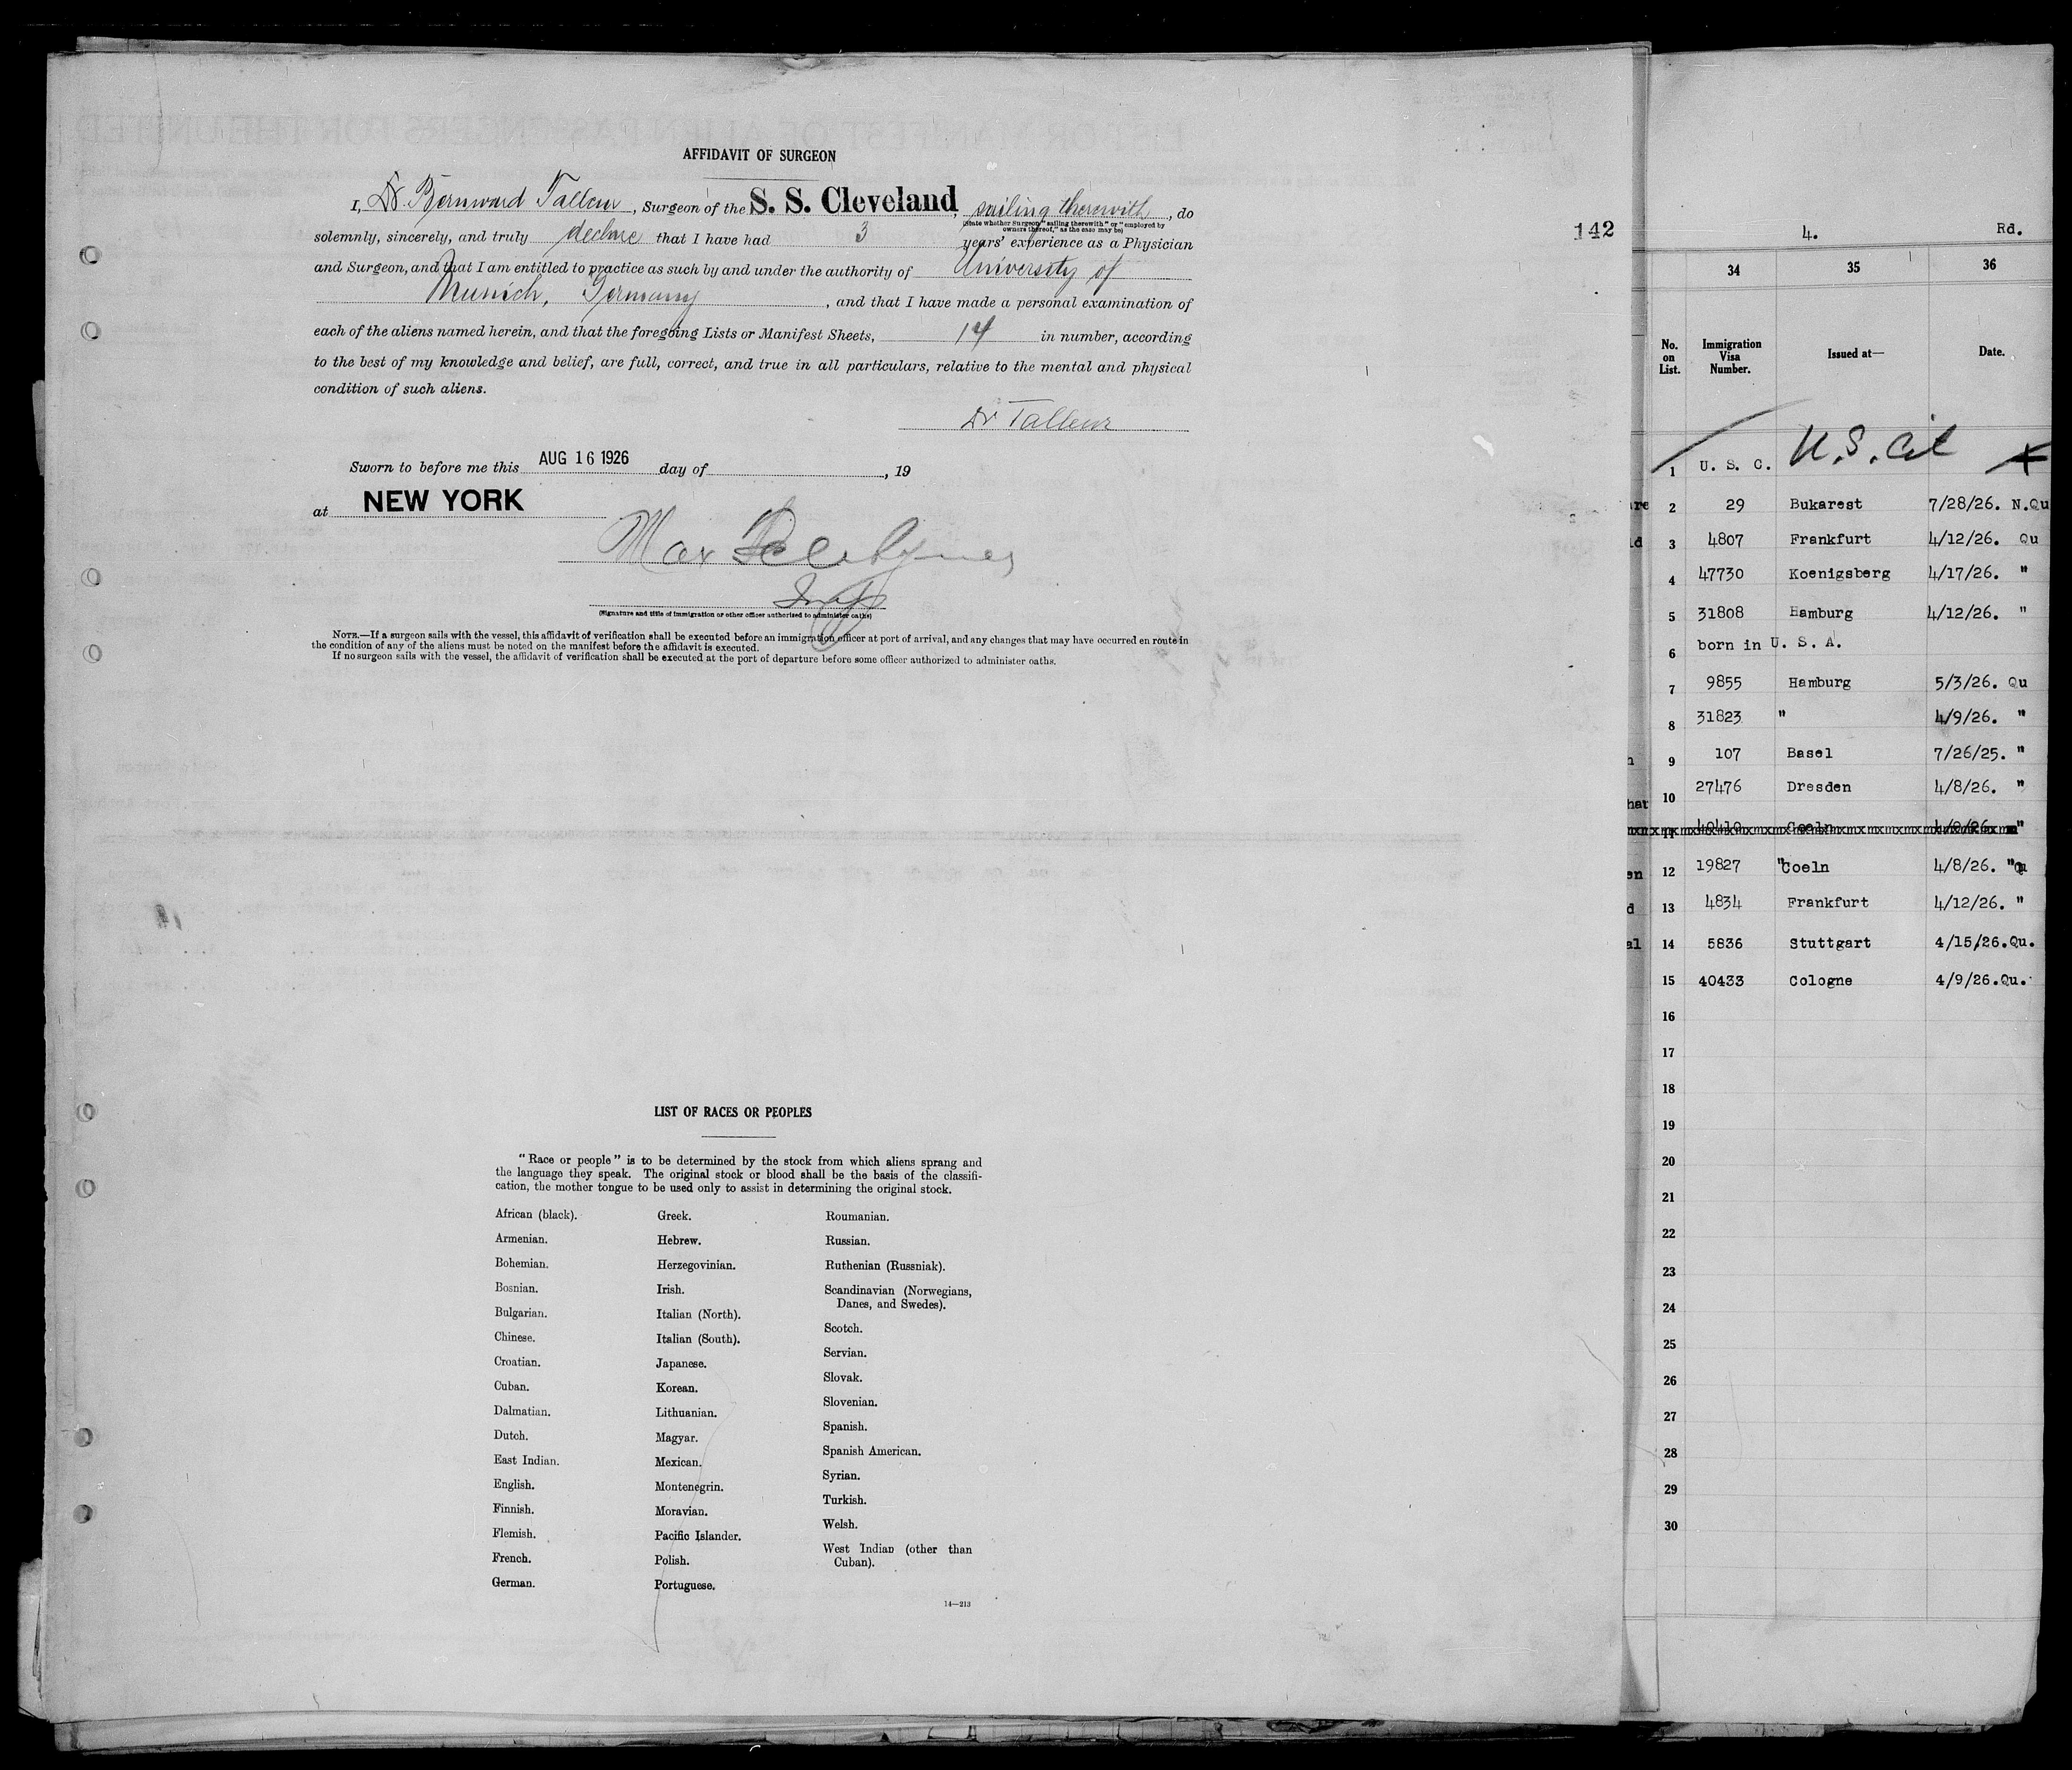 AFFIDAVIT OF SURGEON
I, Dr. Bernward Talleur, Surgeon of the S. S. Cleveland, sailing therewith, do
(State whether Surgeon "sailing therewith" or "employed by owners thereof," as the case may be)
solemnly, sincerely, and truly declare that I have had 3 years' experience as a Physician
and Surgeon, and that I am entitled to practice as such by and under the authority of University of
Munich, Germany, and that I have made a personal examination of
each of the aliens named herein, and that the foregoing Lists or Manifest Sheets, 14 in number, according
to the best of my knowledge and belief, are full, correct, and true in all particulars, relative to the mental and physical
condition of such aliens.
Dr Talleur
Sworn to before me this AUG 16 1926 day of , 19
at NEW YORK
Max
Insp
(Signature and title of immigration or other officer authorized to administer oaths)
NOTE.—If a surgeon sails with the vessel, this affidavit of verification shall be executed before an immigration officer at port of arrival, and any changes that may have occurred en route in
the condition of any of the aliens must be noted on the manifest before the affidavit is executed.
If no surgeon sails with the vessel, the affidavit of verification shall be executed at the port of departure before some officer authorized to administer oaths.
LIST OF RACES OR PEOPLES
"Race or people" is to be determined by the stock from which aliens sprang and
the language they speak. The original stock or blood shall be the basis of the classifi-
cation, the mother tongue to be used only to assist in determining the original stock.
African (black).
Armenian.
Bohemian.
Bosnian.
Bulgarian.
Chinese.
Croatian.
Cuban.
Dalmatian.
Dutch.
East Indian.
English.
Finnish.
Flemish.
French.
German.
Greek.
Hebrew.
Herzegovinian.
Irish.
Italian (North).
Italian (South).
Japanese.
Korean.
Lithuanian.
Magyar.
Mexican.
Montenegrin.
Moravian.
Pacific Islander.
Polish.
Portuguese.
Roumanian.
Russian.
Ruthenian (Russniak).
Scandinavian (Norwegians,
Danes, and Swedes).
Scotch.
Servian.
Slovak.
Slovenian.
Spanish.
Spanish American.
Syrian.
Turkish.
Welsh.
West Indian (other than
Cuban).
14—213
142
4. Rd.
34 35 36
No. on List. Immigration Visa Number. Issued at— Date.
1 U. S. C. U.S. Cit
2 29 Bukarest 7/28/26. N.Qu
3 4807 Frankfurt 4/12/26. Qu
4 47730 Koenigsberg 4/17/26. "
5 31808 Hamburg 4/12/26. "
6 born in U. S. A.
7 9855 Hamburg 5/3/26. Qu
8 31823 " 4/9/26. "
9 107 Basel 7/26/25. "
10 27476 Dresden 4/8/26. "
11 40410 Coeln "
12 19827 "Coeln 4/8/26. "
13 4834 Frankfurt 4/12/26. "
14 5836 Stuttgart 4/15/26. Qu.
15 40433 Cologne 4/9/26. Qu.
16
17
18
19
20
21
22
23
24
25
26
27
28
29
30